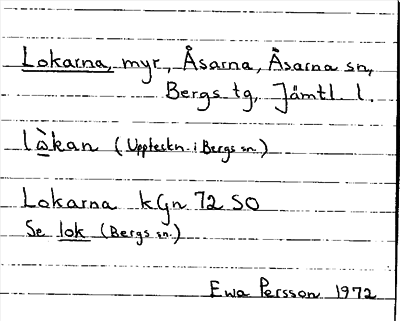 Lokarna, myr, Åsarna, Åsarna sn,
Bergs tg, Jämtl. l.
lò̱kan (Uppteckn. i Bergs sn.)
Lokarna kGn 72 SO
Se lok (Bergs sn.)
Ewa Persson 1972